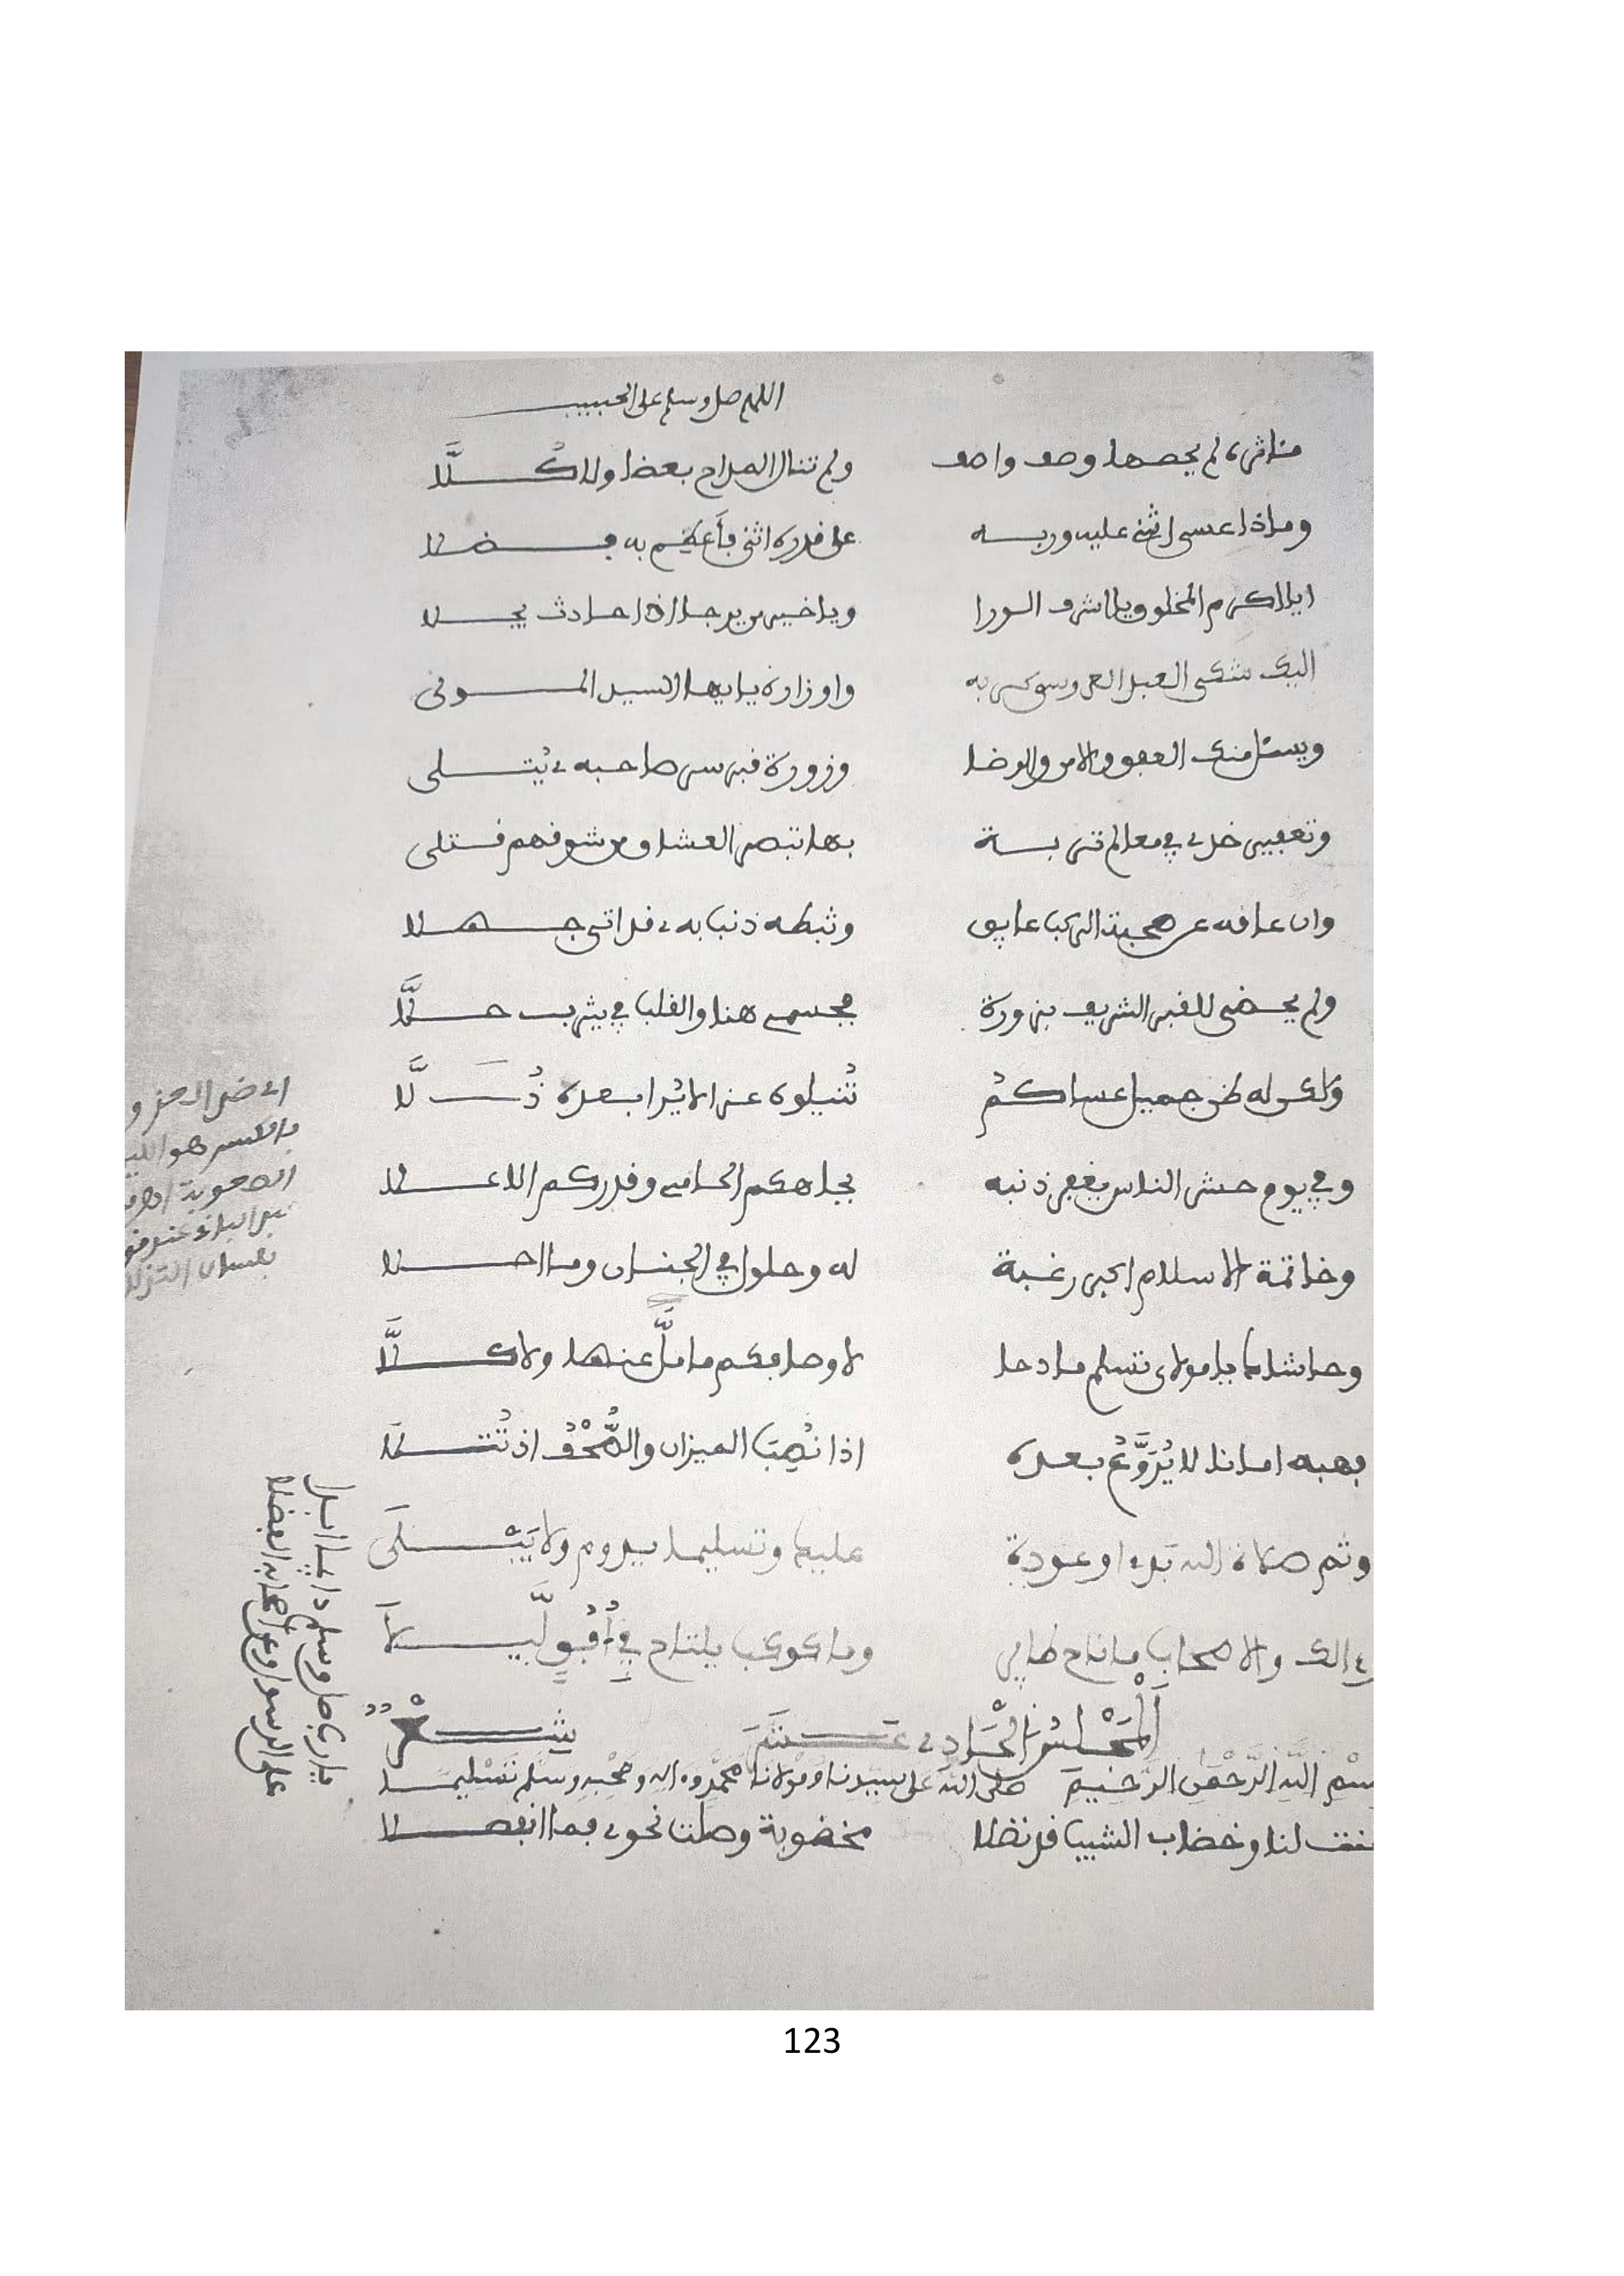 اللهم صل وسلم على الحبيب
مئاثره لم يحصها وصف واصف ولم تنال المداح بعضا ولا كُلَّا
وماذا عسى اثني عليه وربه على قدره اثنى فأعظم به فضلا
ايا اكرم المخلوق يا اشرف الورا ويا خير من يرجا اذا حادث يحلا
اليك شكى العبد العروسي كربه واوزاره يا ايها السيد المولى
ويسئل منك العفو والامن والرضا وزورة قبر سر صاحبه يُتلى
وتعفير خدي في معالم تربة بها تبصر العشاق من شوقهم قتلى
وان عافه عن صحبة الركب عايق وثبطه ذنبا به قد اتى جهلا
ولم يحض للقبر الشريف بزورة فجسمي هنا والقلب في يثرب حلَّا
ولكن له ظن جميل عساكمُ تُنيلوه عزا لا يُرا بعده ذُلَّا
وفي يوم حشر الناس يغفر ذنبه بجاهكم الحامي وقدركم الاعلا
وخاتمة الاسلام اكبر رغبة له وحلول في الجنان وما احلا
وحاشاك يا مولاى تسلم مادحا لاوصافكم ما ملَّ عنها ولا كلَّا
فهبه امانا لا يُرَوَّعُ بعده اذا نُصِبَ الميزان والصُّحْفُ اذ تُتلَا
وثم صلاة الله بدءا وعودة عليك وتسليما يدوم ولا يَبْلَى
والاصحاب ما ناح طاير وما كوكب يلتاح في أُفُقٍ لَّيلَا
اَلْمَجْلِسُ الْحَادي عَشَرَ شِعْرٌ
بِسْمِ اللَّهِ الرَّحْمَنِ الرَّحِيمِ صَلَّى اللَّهُ عَلَى سَيِّدِنَا وَمَوْلَانَا مُحَمَّدٍ وَءَالِهِ وَصَحْبِهِ وَسَلَّمَ تَسْلِيمَا
لنا وخضاب الشيب قد نضلا مخضوبة وصلت نحوي فما انفصلا
بالكسر هو
يا رب صل وسلم دايما ابدا
على الرسول وعلى اصحابه الفضلا
123